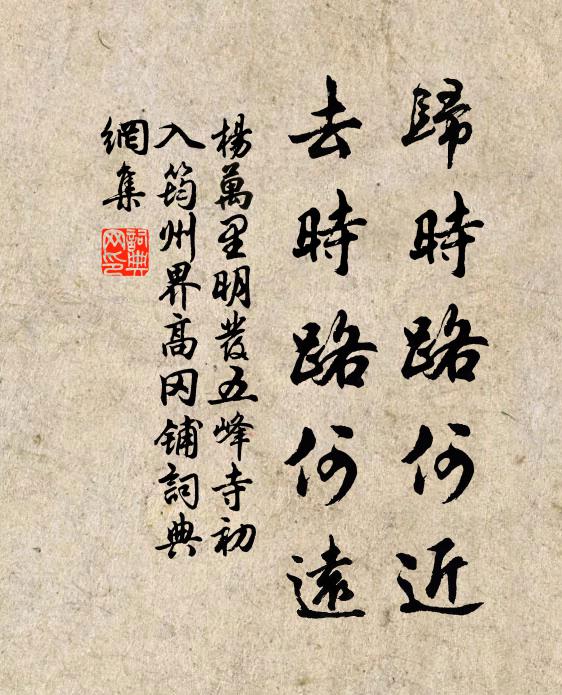 歸時路何近
去時路何遠
楊萬里明發五峰寺初
入筠州界高冈铺詞典
網集
詞典
网印